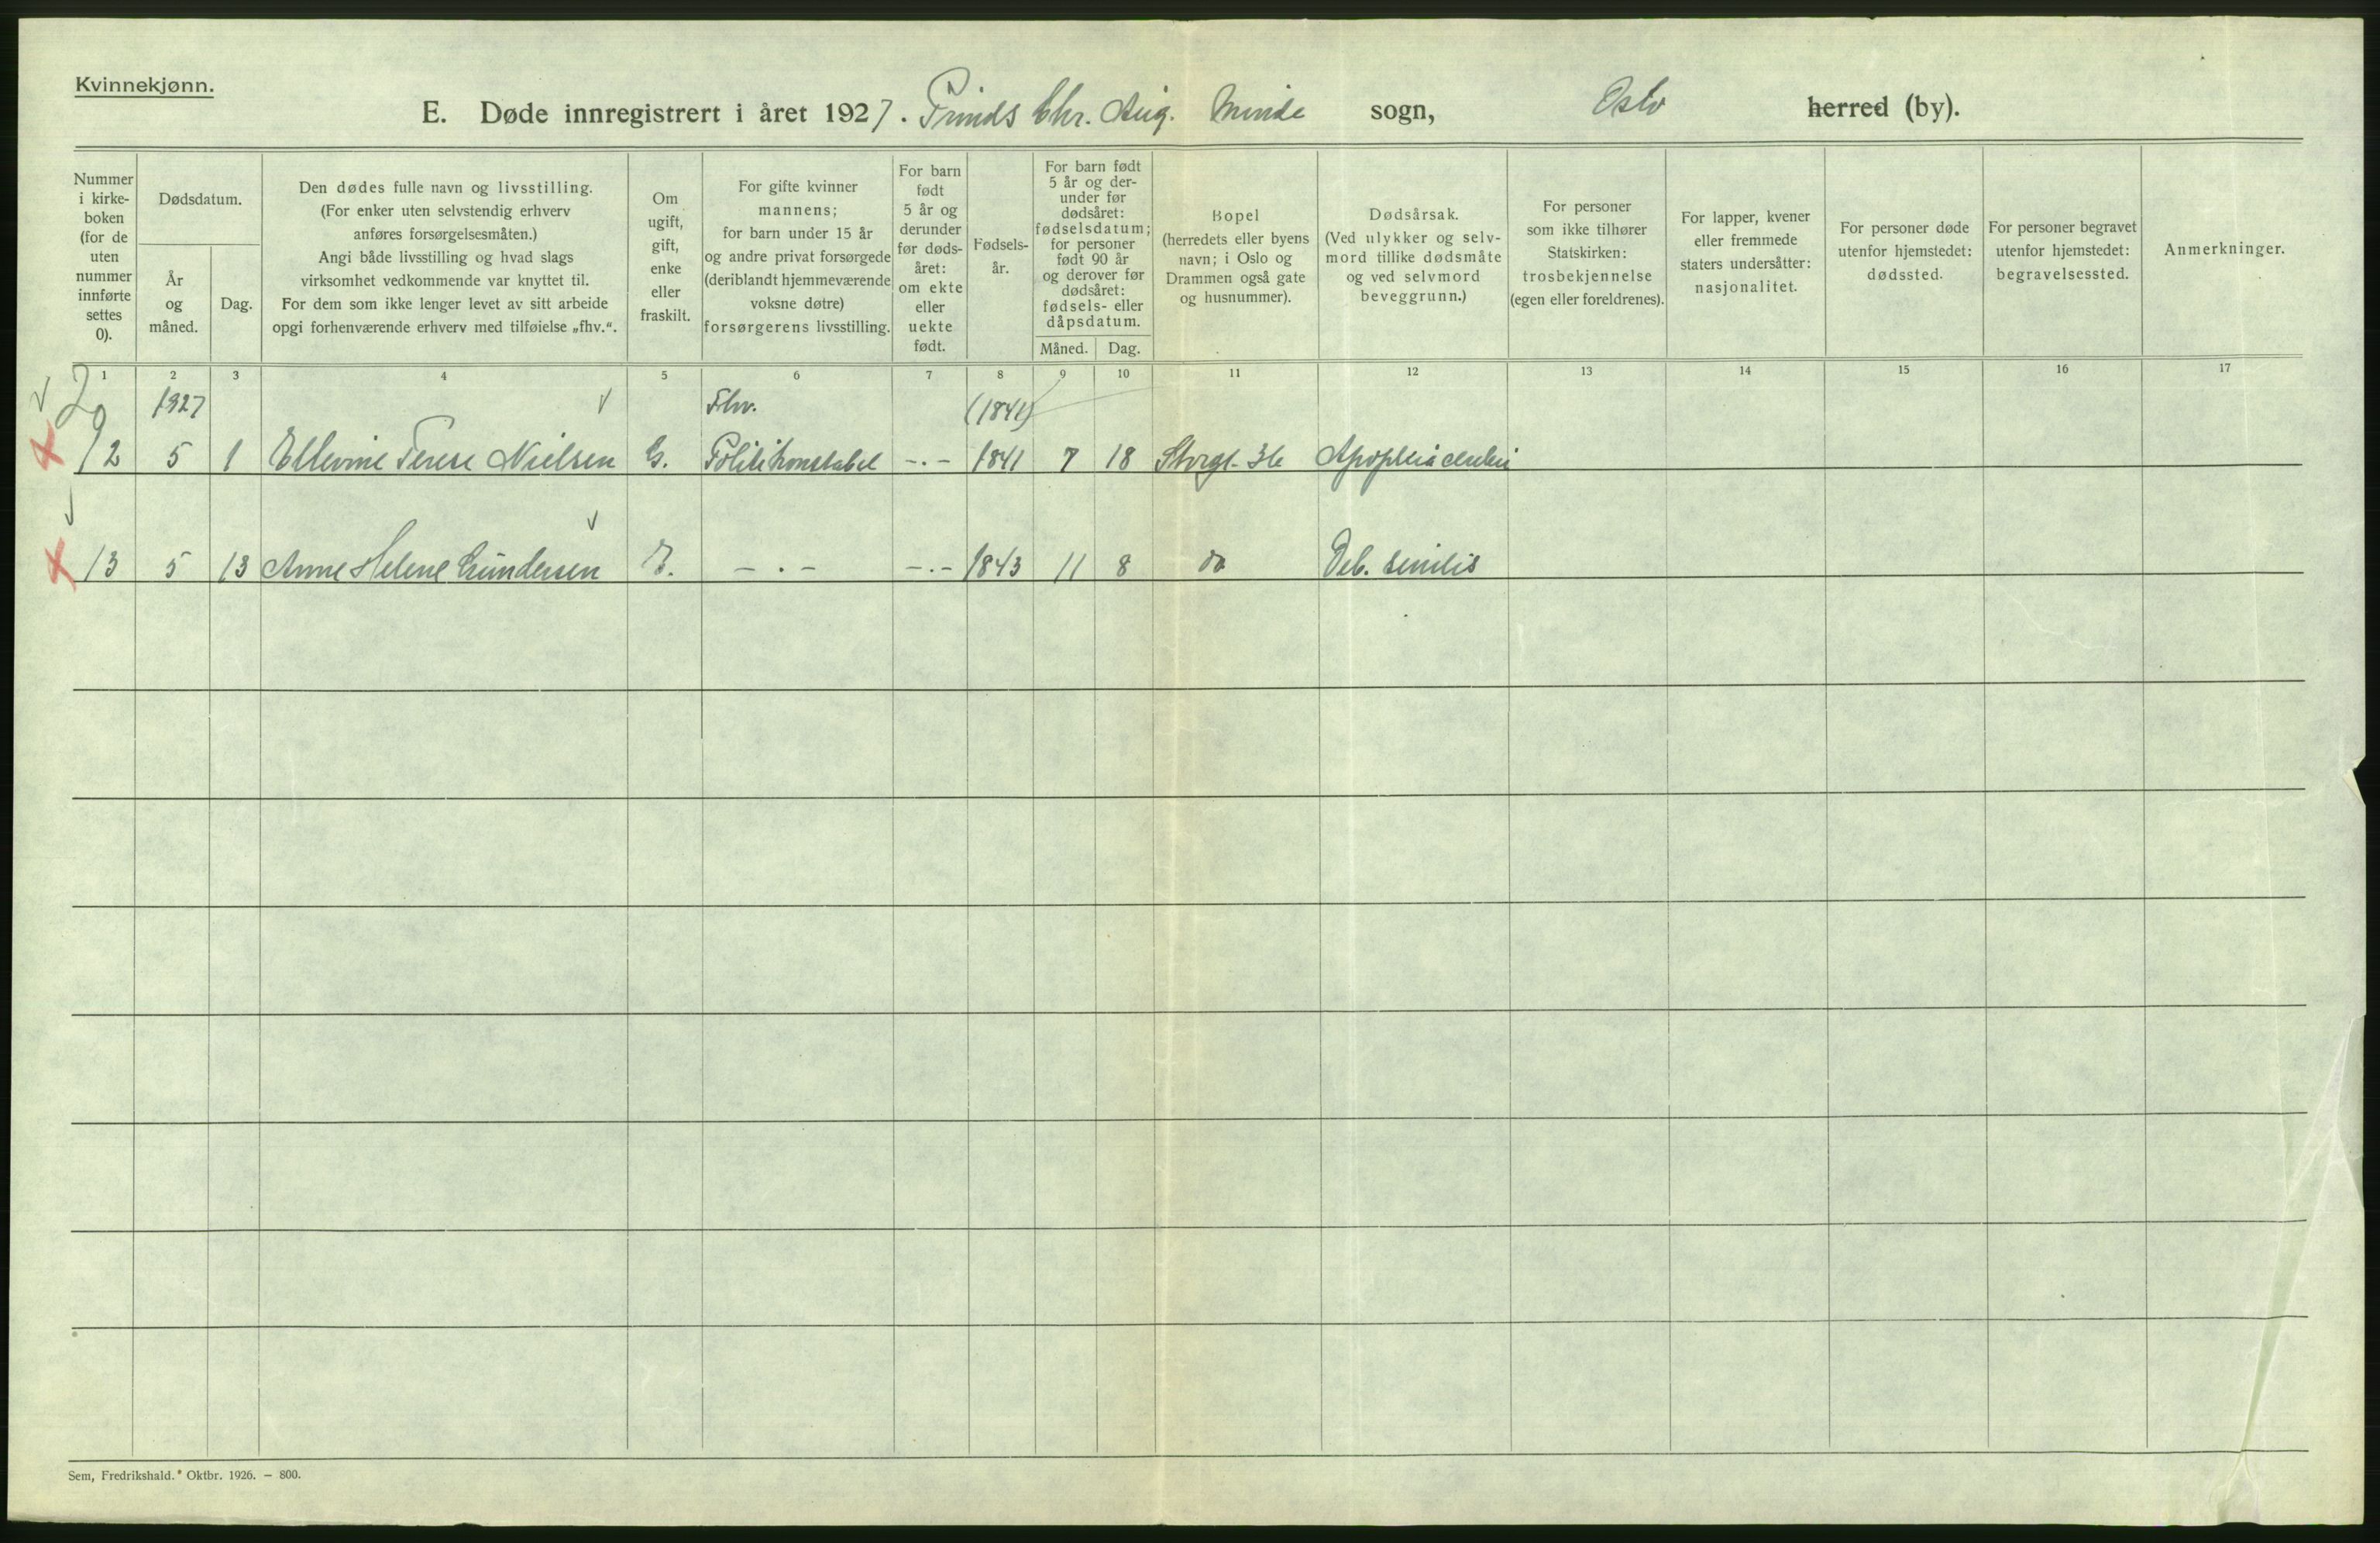 Kvinnekjønn.
E. Døde innregistrert i året 1927. Prinds Chr. Aug. Minde sogn, Oslo herred (by).
Nummer i kirke- boken (for de uten nummer innførte settes 0).
Dødsdatum.
År og måned.
Dag.
Den dødes fulle navn og livsstilling.
(For enker uten selvstendig erhverv
anføres forsørgelsesmåten.)
Angi både livsstilling og hvad slags
virksomhet vedkommende var knyttet til.
For dem som ikke lenger levet av sitt arbeide
opgi forhenværende erhverv med tilføielse „fhv.“.
Om ugift, gift, enke eller fraskilt.
For gifte kvinner
mannens;
for barn under 15 år
og andre privat forsørgede
(deriblandt hjemmeværende
voksne døtre)
forsørgerens livsstilling.
For barn født 5 år og derunder før døds- året: om ekte eller uekte født.
Fødsels- år.
For barn født
5 år og der-
under før
dødsåret:
fødselsdatum;
for personer
født 90 år
og derover før
dødsåret:
fødsels- eller
dåpsdatum.
Måned. Dag.
Bopel
(herredets eller byens
navn; i Oslo og
Drammen også gate
og husnummer).
Dødsårsak.
(Ved ulykker og selv-
mord tillike dødsmåte
og ved selvmord
beveggrunn.)
For personer
som ikke tilhører
Statskirken:
trosbekjennelse
(egen eller foreldrenes).
For lapper, kvener
eller fremmede
staters undersåtter:
nasjonalitet.
For personer døde
utenfor hjemstedet:
dødssted.
For personer begravet
utenfor hjemstedet:
begravelsessted.
Anmerkninger.
1 2 3 4 5 6 7 8 9 10 11 12 13 14 15 16 17
1927 Fhv. (1841)
12 5 1 Ellevine Terese Nielsen G. Politikonstabel -.- 1841 7 18 Storgt. 36 Apoplexia cerebri
13 5 13 Anne Helene Gundersen E. - . - -.- 1843 11 8 do Deb. senilis
Sem, Fredrikshald. Oktbr. 1926. — 800.